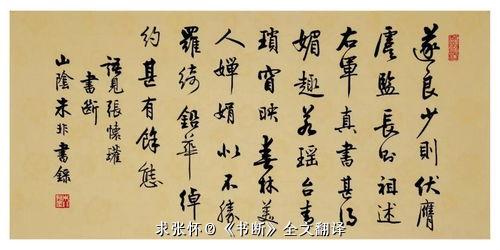 遂良少則伏膺
虞監長則祖述
右軍真書甚得
媚趣若瑶台青
瑣窅映春林美
人嬋娟似不勝
羅綺鉛華綽
約甚有餘態
語見張懷瓘
書斷
山陰朱非書錄
求张怀@《书断》全文翻译